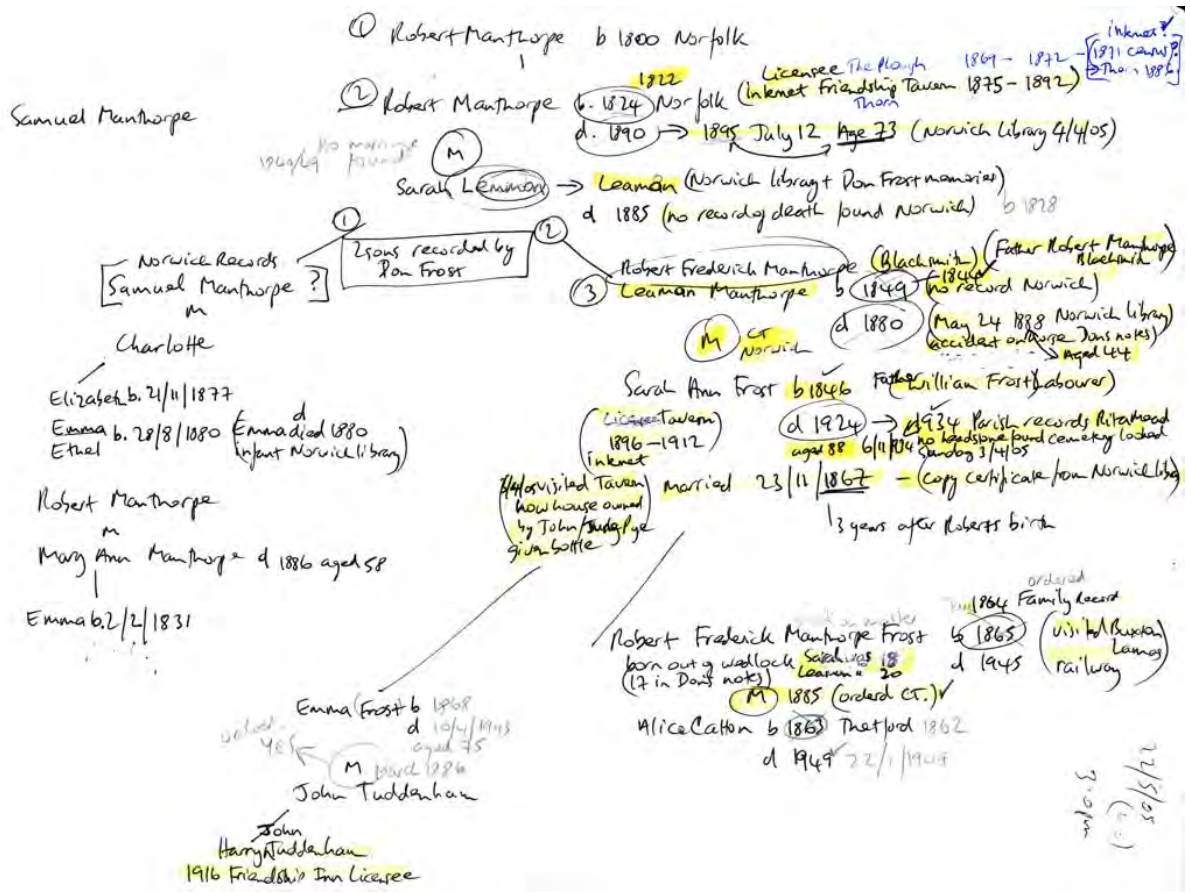 ① Robert Manthorpe b 1800 Norfolk
internet?
1871 census?
Thorn 1886
1869 - 1872 -
1822
Licensee The Plough
② Robert Manthorpe b. 1824 Norfolk (internet Friendship Tavern 1875-1892)
Thorn
d. 1890 → 1895 July 12 Age 73 (Norwich Library 4/4/05)
Samuel Manthorpe
No marriage found
M
Sarah Lemmon → Leaman (Norwich library + Don Frost memories)
d 1885 (no record of death found Norwich) b 1828
①
2 sons recorded by
Don Frost
②
Norwich Records
[Samuel Manthorpe ?]
m
Charlotte
Elizabeth b. 21/11/1877
Emma b. 28/8/1880 (Emma died 1880
Ethel infant Norwich library)
Robert Manthorpe
m
Mary Ann Manthorpe d 1886 aged 58
Emma b. 2/2/1831
Robert Frederick Manthorpe (Blacksmith) (Father Robert Manthorpe
Blacksmith)
③ Leaman Manthorpe b 1849 (no record Norwich)
d 1880 (May 24 1888 Norwich library)
(accident on horse Dons notes)
Aged 44
M CT
Norwich
Sarah Ann Frost b 1846 Father William Frost (Labourer)
(Licensee Tavern
1896-1912
internet)
d 1924 → 1934 Parish records Rita Mead
aged 88 6/11/1934 no headstone found cemetery looked
Sunday 3/4/05
3/4/05 visited Tavern
now house owned
by John/Judy Pye
given bottle
Married 23/11/1867 - (copy certificate from Norwich
3 years after Roberts birth
ordered
1864 Family Record
Robert Frederick Manthorpe Frost b 1865 (visited Buxton
Lamas
born out of wedlock Sarah was 18 d 1945 railway)
(17 in Dons notes) Leaman 20
M 1885 (orderd CT.) ✓
Alice Catton b 1863 Thetford 1862
d 1949 22/1/1949
Emma (Frost b 1868
d 10/4/1943
aged 75
M 1886
John Tuddenham
John
Harry Tuddenham
1916 Friendship Inn Licensee
22/5/05
3.0pm